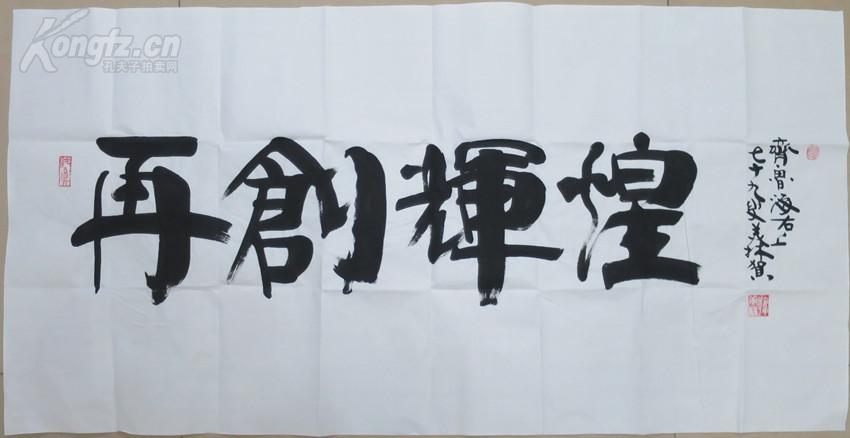 Kongfz.cn
孔夫子拍卖网
再創輝煌
齊魯海右上
七十九叟